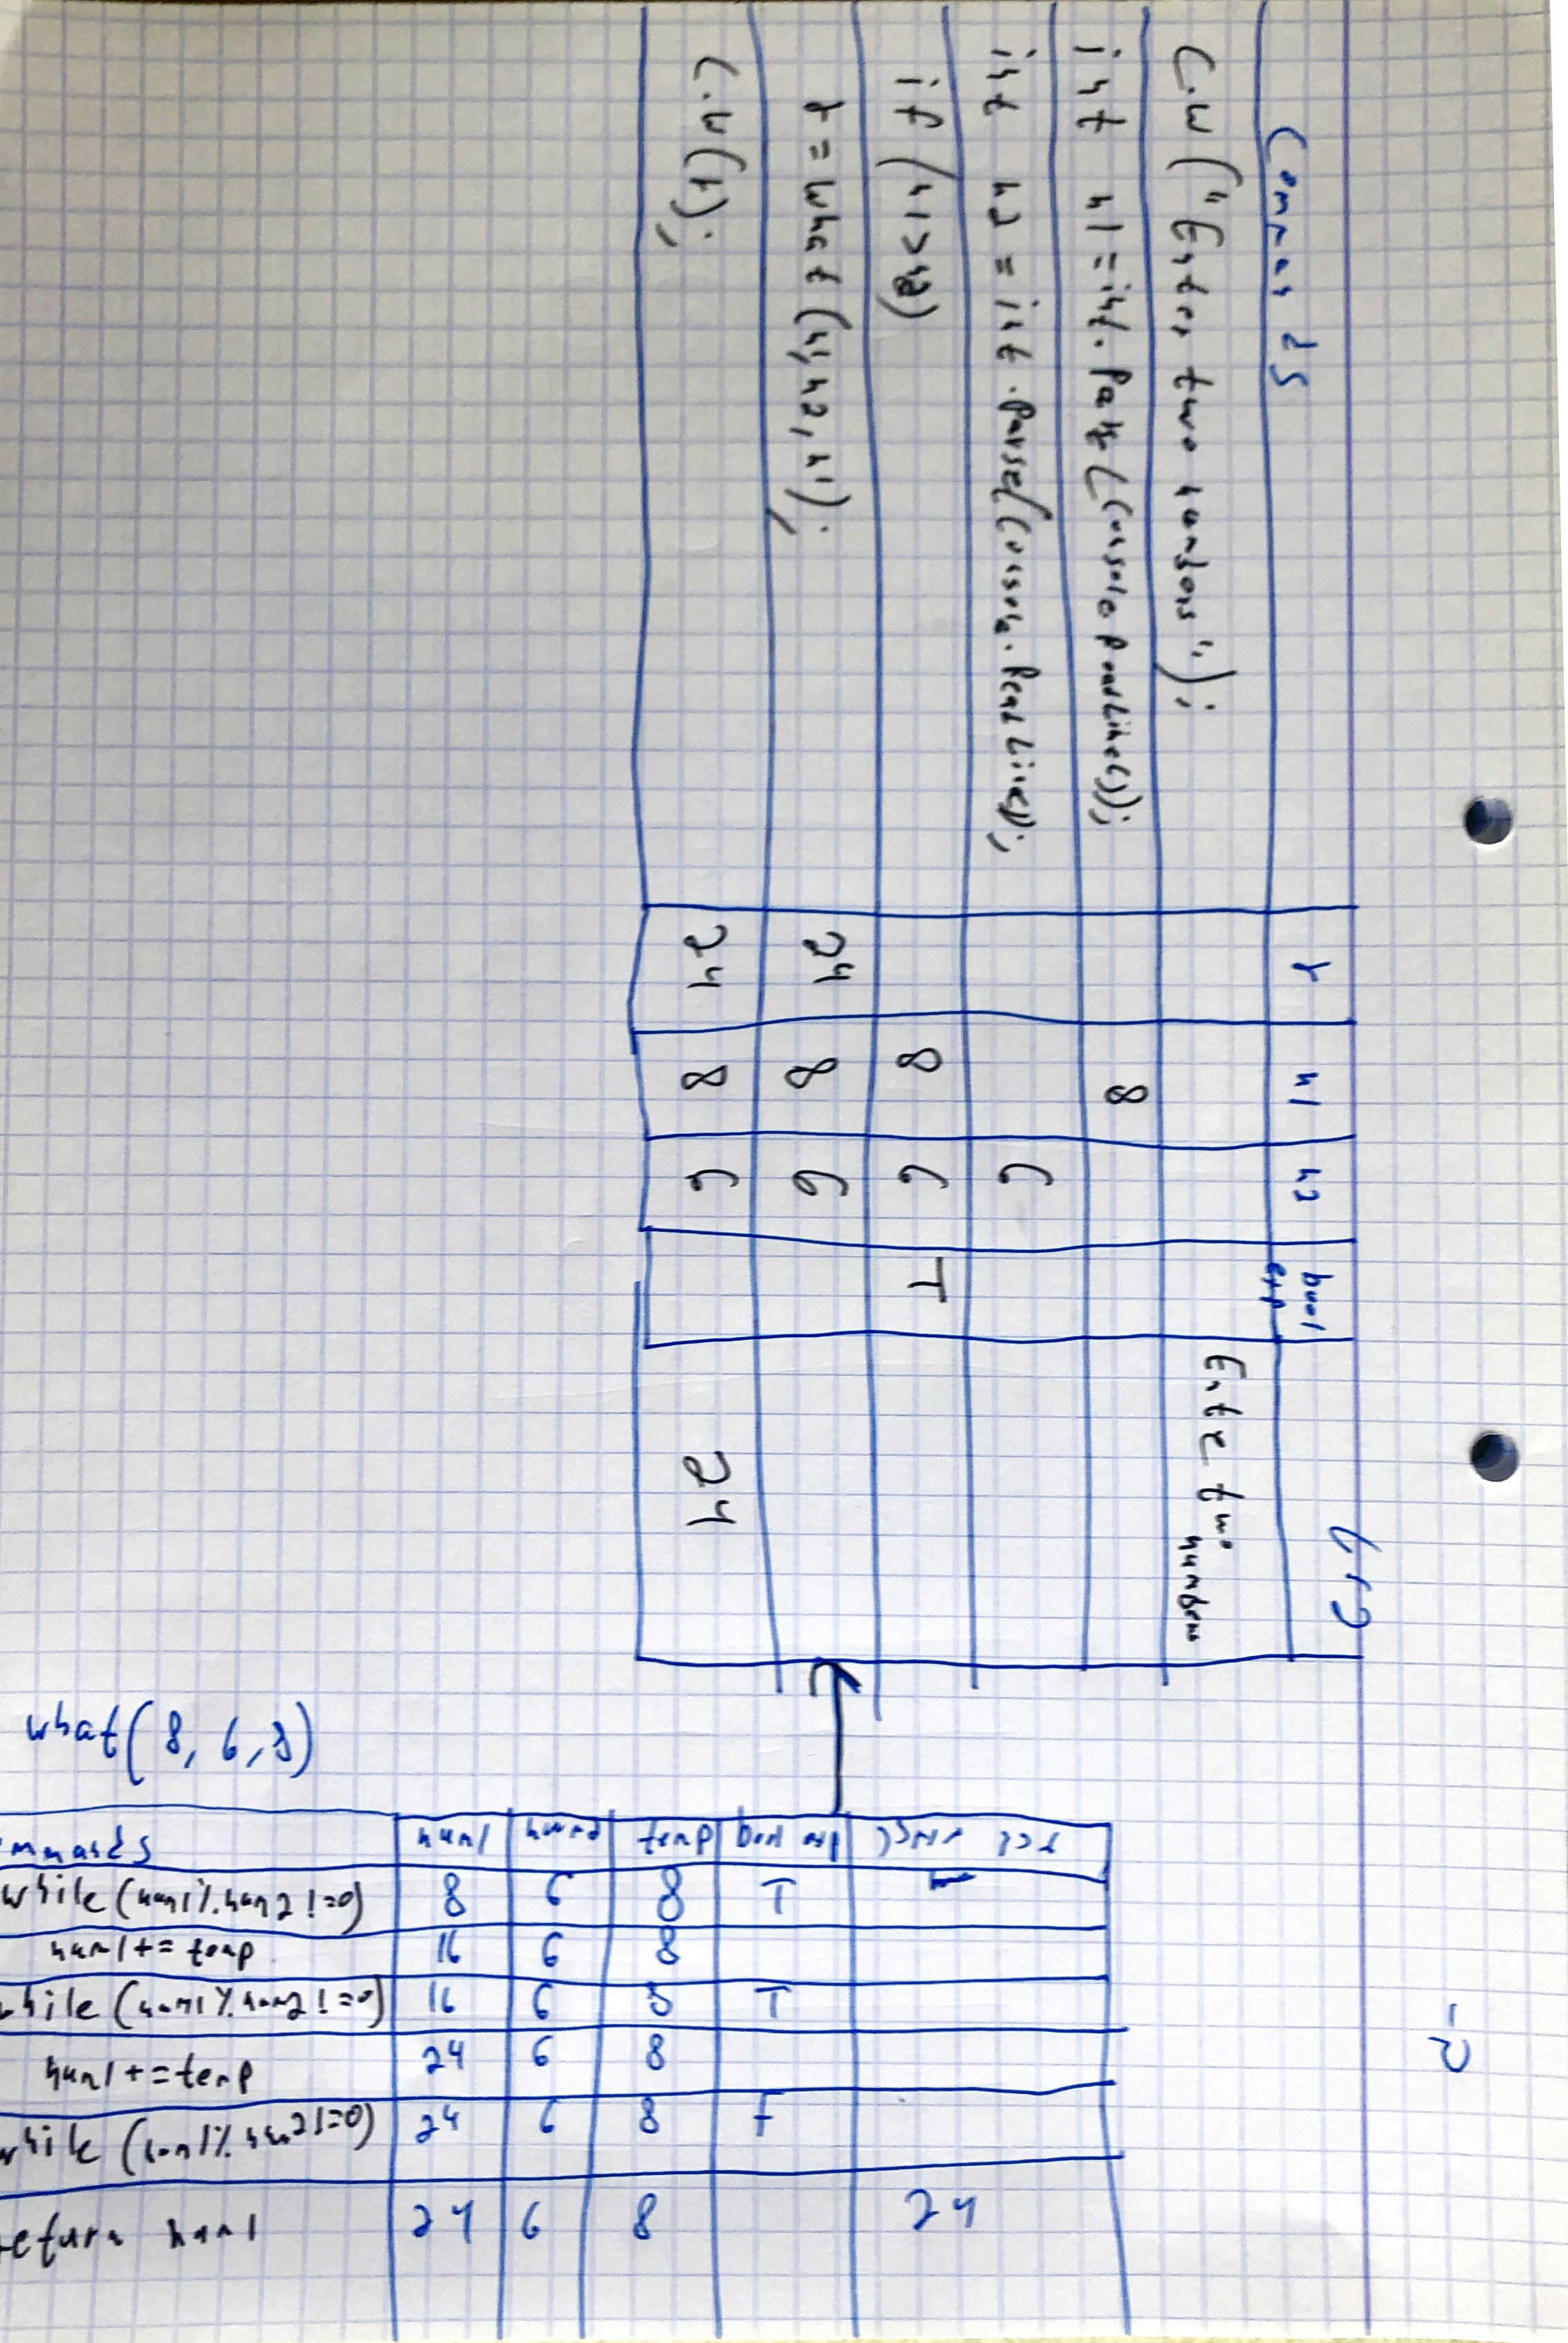 פלט
Commands r n1 n2 bool exp
C.W("Enter two numbers"); Enter two numbers
int n1=int.Parse(Console.ReadLine()); 8
int n2=int.Parse(Console.ReadLine()); 6
if (n1>n2) 8 6 T
r=what(n1,n2,n1); 24 8 6
C.W(r); 24 8 6 24
-2
what(8, 6, 8)
mmands num1 num2 temp bool exp
while(num1%num2!=0) 8 6 8 T
num1+=temp 16 6 8
while(num1%num2!=0) 16 6 8 T
num1+=temp 24 6 8
while(num1%num2!=0) 24 6 8 F
return num1 24 6 8 24